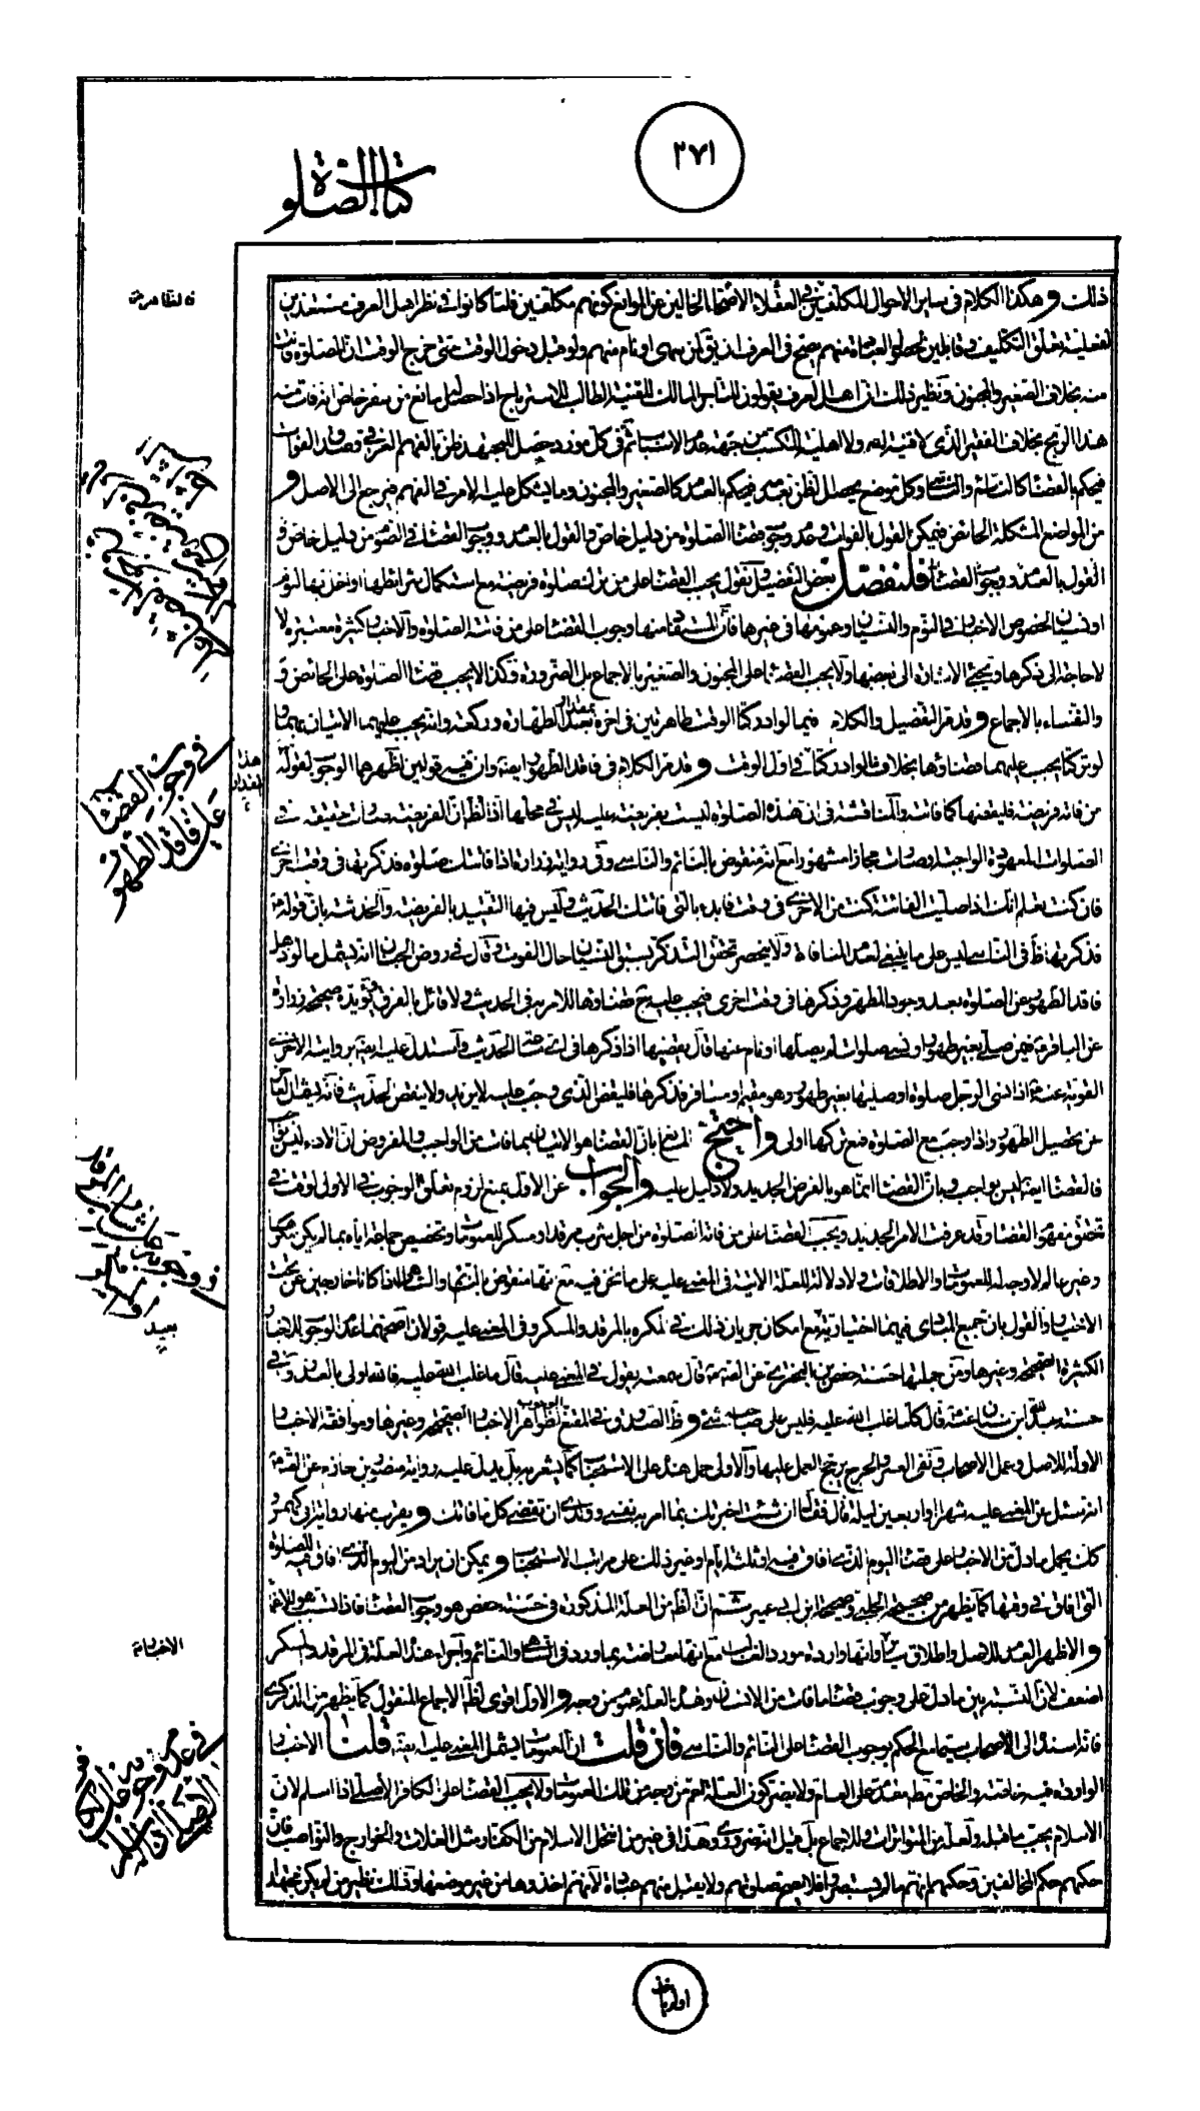 ٢٧١
كتاب الصلوة
ذلك وهكذا الكلام في ساير الاحوال للمكلفين في العقلاء الاصحاء الخالين عن الموانع كونهم مكلفين فلما كانوا في نظر اهل العرف مستعدين
لفعلية تعلق التكليف وقابلين العبادة منهم يصح في العرف ان يق لمن سهى او نام منهم ولو قبل دخول الوقت حتى خرج الوقت ان الصلوة فاتت
منه بخلاف الصغير والمجنون ونظير ذلك ان اهل العرف يقولون للتاجر المالك للقنية الطالب للاسترباح اذا حصل له مانع من سفر خاص انه فات منه
هذا الربح بخلاف الفقير الذي لا قنية له ولا اهلية للتكسب من جهة عدم الاسباب ثم في كل مورد حصل للمجتهد ظن بالفهم العرفي وصدق الفوات
فيحكم بالقضا كالنائم والناسي وكل موضع يحصل الظن بعدمه فيحكم بالعدم كالصغير والمجنون وما يشكل عليه الامر في الفهم فيرجع الى الاصل و
من المواضع المشكلة الحائض فيمكن القول بالفوات وعدم وجوب قضا الصلوة من دليل خاص والقول بالعدم ووجوب القضا في الصوم من دليل خاص و
القول بالعدم ووجوب القضا فلنفصل بعض التفصيل فنقول يجب القضا على من ترك صلوة فريضة مع استكمال شرائطها او اخل بها لنوم
او نسيان لخصوص الاخبار في النوم والنسيان وعمومها في غيرها فان المستفاد منها وجوب القضا على من فاتته الصلوة والاخبار كثيرة معتبرة لا
حاجة الى ذكرها ويجئ الاشارة الى بعضها ولا يجب القضا على المجنون والصغير بالاجماع بل الضرورة وكذا لا يجب قضا الصلوة على الحائض و
والنفساء بالاجماع وقد مر التفصيل والكلام فيما لو ادركتا الوقت طاهرتين في اخره بمقدار الطهارة وركعة وانه يجب عليهما الاتيان بهما و
لو تركتا يجب عليهما قضاؤها بخلاف ما لو ادركتا في اول الوقت وقد مر الكلام في فاقد الطهور ايضا وان فيه قولين اظهرهما الوجوب لقوله
من فاته فريضة فليقضها كما فاتته والمناقشة في ان هذه الصلوة ليست بفريضة عليه ليس في محلها اذ الظ ان الفريضة صارت حقيقة في
الصلوات المعهودة الواجبة او صارت مجازا مشهورا مع انه منقوض بالنائم والناسي وفي رواية زرارة اذا فاتتك صلوة فذكرتها في وقت اخرى
فان كنت تعلم انك اذا صليت الفائتة كنت من الاخرى في وقت فابدء بالتي فاتتك الحديث وليس فيها التقييد بالفريضة والخدشة بان قوله
فذكرتها ظ في الناسي ليس على ما ينبغي لعدم المنافاة ولا ينحصر تحقق التذكر بسبق النسيان حال الفوت قال في روض الجنان انه يشمل ما لو ذهل
فاقد الطهور عن الصلوة بعد وجود المطهر وذكرها في وقت اخرى فيجب عليه ح قضاؤها للامر به في الحديث ولا قائل بالفرق ويؤيده صحيحة زرارة
عن الباقر ع فيمن صلى بغير طهور او نسى صلوات لم يصلها او نام عنها قال يقضيها اذا ذكرها في اي ساعة الحديث واستدل عليه ايضا برواية الاخرى
القوية عنه اذا نسى الرجل صلوة او صليها بغير طهور وهو مقيم او مسافر فذكرها فليقض الذي وجب عليه لا يزيد ولا ينقض الحديث فانه يشمل
عن تحصيل الطهور واذا وجب مع الصلوة فمع تركها اولى واحتج المانع بان القضا هو الاتيان بما فات من الواجب والمفروض ان الاداء ليس
فالقضا ايضا ليس بواجب وبان القضا انما هو بالفرض الجديد ولا دليل عليه والجواب عن الاول بمنع لزوم تعلق الوجوب في الاولى
تحقق مفهوم القضا وقد عرفت الامر الجديد ويجب القضا على من فاته الصلوة من اجل شرب مرقد او مسكر للعمومات وتخصيص جماعة اياه بما لم يكن مكرها
وغير عالم لا وجه له للعمومات والاطلاقات ولا دلالة للعلة الاتية في المغمى عليه على ما نحن فيه مع انها منقوض بالنائم والساهي اذا كانا خارجين عن تحت
الاختيار والقول بان جميع المبادي فيهما اختيارية مع امكان جريان ذلك في المكره بالمرقد والمسكر وفي المغمى عليه قولان اصحهما عدم الوجوب للاخبار
الكثيرة الصحيحة وغيرها ومن جملتها حسنة حفص بن البختري عن الصادق ع قال سمعته يقول في المغمى عليه قال ما غلب الله عليه فالله اولى بالعذر وفي
حسنة عبد الله ابن سنان عنه قال كلما غلب الله عليه فليس على صاحبه شئ وظ الصدوق في المقنع الوجوب لظواهر الاخبار الصحيحة وغيرها وموافقة الاخبار
الاولة للاصل وعمل الاصحاب ونفى العسر والحرج يرجح العمل عليها والاولى حمل هذه على الاستحباب كما يشعر به بل يدل عليه رواية منصور بن حازم عن الصادق ع
انه سئل عن المغمى عليه شهرا او اربعين ليلة قال فقال ان شئت اخبرتك بما امر به نفسي وولدي ان تقضي كل ما فاتك ويقرب منها رواية ابي كهمس و
كك يحمل ما دل من الاخبار على قضا اليوم الذي افاق فيه او ثلثة ايام او غير ذلك على مراتب الاستحباب ويمكن ان يراد من اليوم الذي افاق فيه الصلوة
التي افاق في وقتها كما يظهر من صحيحة الحلبي وصحيحة ابن ابي عمير ثم ان الظ من العلة المذكورة في حسنة حفص هو وجوب القضا فاذا السبب هو الاغماء
والاظهر العدم للاصل واطلاق وانها واردة مورد الغالب مع انها معارضة بما ورد في الساهي والنائم واجراء هذه العلة في المرقد والمسكر
اضعف لان النسبة بين ما دل على وجوب قضا ما فات من الانسان وهذه العلة عموم من وجه والاول اقوى لظ الاجماع المنقول كما يظهر من الذكرى
فانه اسنده الى الاصحاب سيما مع الحكم بوجوب القضا على النائم والناسي فان قلت ان العمومات يشمل المغمى عليه ايضا قلنا الاخبار
الواردة فيه خاصة والخاص مقدم على العام ولا يضر كون العلة اعم من وجه من تلك العمومات ولا يجب القضا على الكافر الاصلي اذا اسلم لان
الاسلام يجب ما قبله ولعله من المتواترات وللاجماع بل قيل انه ضروري وهذا في غير من انتحل الاسلام من الكفار مثل الغلات والخوارج والنواصب فان
حكمهم حكم المخالفين وحكمهم انهم ما لم يستبصروا فلا يصح صلوتهم ولا يقبل منهم عبادة لانهم اخذوها من غير موضعها وذلك نظير من لم يكن مجتهدا
في وجوب القضا
على فاقد الطهور
هذا المقدار
في عدم وجوب